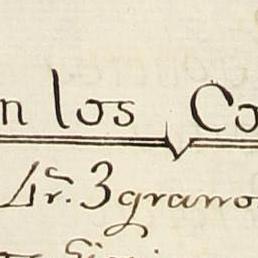 n los Co
4r. 3 grano